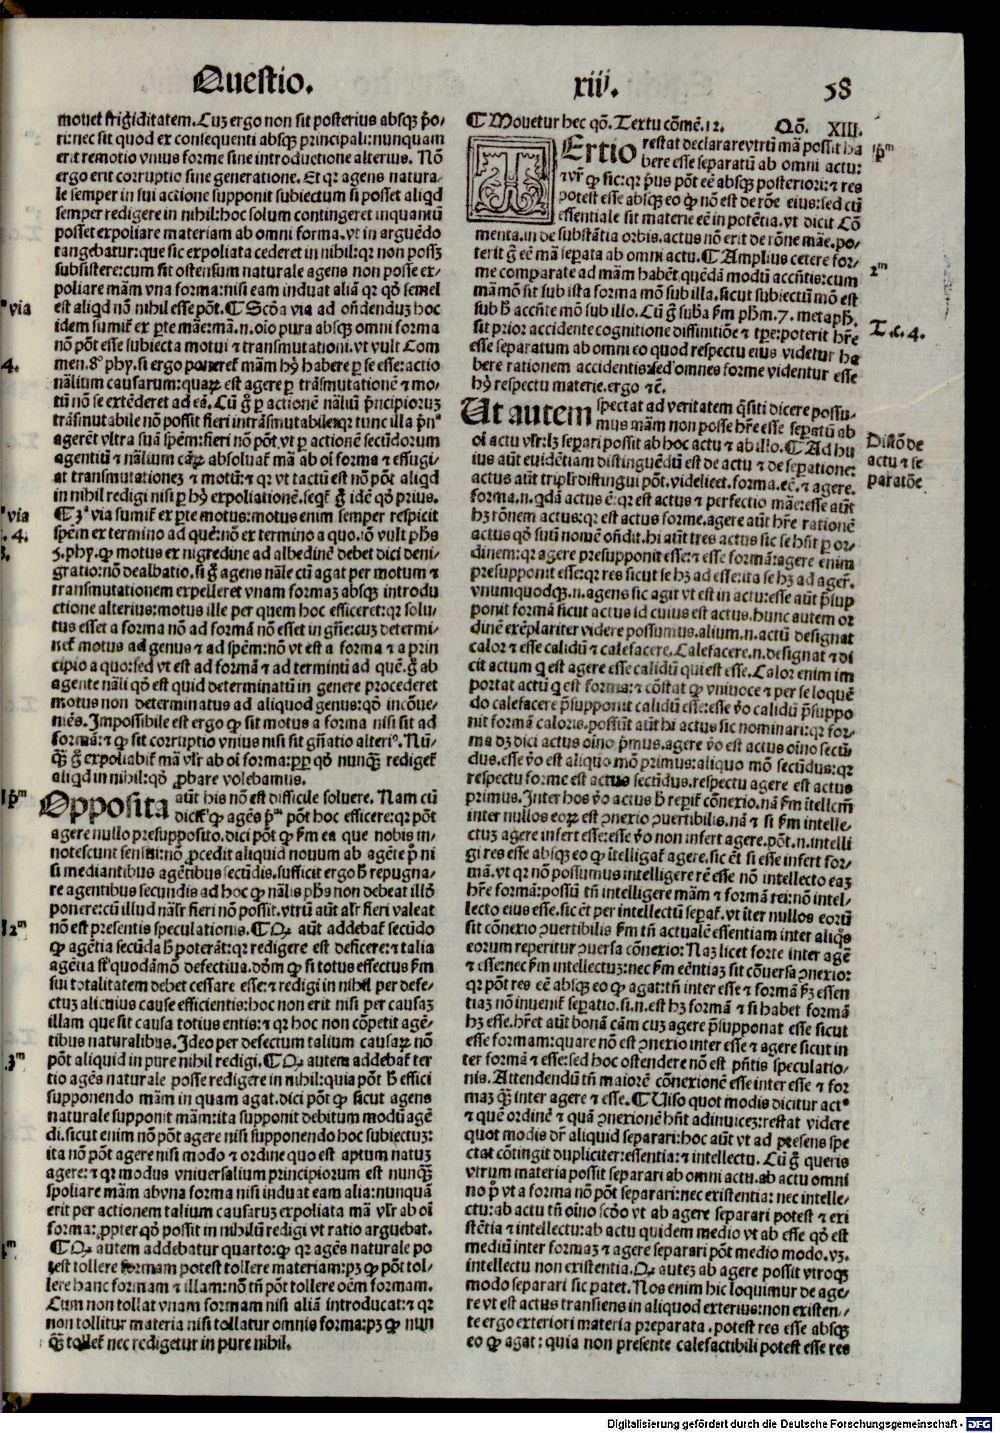 Questio. xiij. 58
mouet frigiditatem. Cuʒ ergo non sit posterius absqꝫ p̄o-
ri: nec sit quod ex consequenti absqꝫ principali: nunquam
erit remotio vnius forme sine introductione alterius. Nō
ergo erit corruptio sine generatione. Et qꝛ agens natura-
le semper in sui actione supponit subiectum si posset aliqd
semper redigere in nihil: hoc solum contingeret inquantū
posset expoliare materiam ab omni forma. vt in arguēdo
tangebatur: que sic expoliata cederet in nihil: qꝛ non possʒ
subsistere: cum sit ostensum naturale agens non posse ex-
poliare mām vna forma: nisi eam induat aliā qꝛ qō semel
via
est aliqd nō nihil esse pōt. ¶ Scōa via ad on̄denduʒ hoc
idem sumit̄ ex ꝑte māe: mā. n. oīo pura absqꝫ omni forma
nō pōt esse subiecta motui ⁊ transmutationi. vt vult Com
4.
men. 8º phy. si ergo poneret̄ mām hꝫ habere ꝑ se esse: actio
nāliū non se extēderet ad eā. Cū g̊ ꝑ actionē nāliū p̄ncipioruʒ
trāsmutabile nō possit fieri intrāsmutabile: qꝛ tunc illa
agerēt vltra suā spēm: fieri nō pōt, vt ꝑ actionē secūdorum
agentiū ⁊ nāliū cāꝝ absoluat̄ mā ab oī forma ⁊ effugi-
at transmutationeʒ ⁊ motū: ⁊ qꝛ vt tactū est nō pōt aliqd
in nihil redigi nisi ꝑ hꝫ expoliationē. seqt̄ g̊ idē qō prius.
via
¶ 3ª via sumit̄ ex ꝑte motus: motus enim semper respicit
4.
spēm ex termino ad quē: nō ex termino a quo. iō vult ph̄s
5. phy. ꝙ motus ex nigredine ad albedinē debet dici deni-
gratio: nō dealbatio. si g̊ agens nāle cū agat per motum ⁊
transmutationem expelleret vnam formaʒ absqꝫ introdu
ctione alterius: motus ille per quem hoc efficeret: qꝛ solu-
tus esset a forma nō ad formā nō esset in gn̄e: cuʒ determi-
net̄ motus ad genus ⁊ ad spēm: nō vt est a forma ⁊ a prin
cipio a quo: sed vt est ad formā ⁊ ad terminū ad quē. g̊ ab
agente nāli qō est quid determinatū in genere procederet
motus non determinatus ad aliquod genus: qō incōue-
niēs. Impossibile est ergo ꝙ sit motus a forma nisi sit ad
formā: ⁊ ꝙ sit corruptio vnius nisi sit gn̄atio alteriꝰ. Nū-
qꝫ g̊ expoliabit̄ mā vlr̄ ab oī forma: ꝓꝑ qō nunqꝫ rediget̄
aliqd in nihil: qō ꝓbare volebamus.
p̄m
Opposita aūt his nō est difficile soluere. Nam cū
dicit̄ ꝙ agēs p̄m pōt hoc efficere: qꝛ pōt
agere nullo presupposito. dici pōt ꝙ ẜm ea que nobis in-
notescunt sensui: nō ꝓcedit aliquid nouum ab agēte p̊ ni
si mediantibus agētibus secūdis. sufficit ergo h̄ repugna-
re agentibus secundis ad hoc ꝙ nālis ph̄s non debeat illō
ponere: cū illud nālr̄ fieri nō possit. vtrū aūt alr̄ fieri valeat
2m
nō est presentis speculationis. ¶ Ꝙ aūt addebat̄ secūdo
ꝙ agētia secūda h̄ poterāt: qꝛ redigere est deficere: ⁊ talia
agētia st̄ quodāmō defectiua. dōm ꝙ si totus effectus ẜm
sui totalitatem debet cessare esse: ⁊ redigi in nihil per defe-
ctuʒ alicuius cause efficientis: hoc non erit nisi per causaʒ
illam que sit causa totius entis: ⁊ qꝛ hoc non cōpetit agē-
tibus naturalibus. Ideo per defectum talium causaꝝ nō
3m
pōt aliquid in pure nihil redigi. ¶ Ꝙ autem addebat̄ ter
tio agēs naturale posse redigere in nihil: quia pōt h̄ effici
supponendo mām in quam agat. dici pōt ꝙ sicut agens
naturale supponit mām: ita supponit debitum modū agē
di. sicut enim nō pōt agere nisi supponendo hoc subiectuʒ:
ita nō pōt agere nisi modo ⁊ ordine quo est aptum natuʒ
agere: ⁊ qꝛ modus vniuersalium principiorum est nunqꝫ
spoliare mām ab vna forma nisi induat eam alia: nunquā
erit per actionem talium causaruʒ expoliata mā vlr̄ ab oī
forma: ꝓpter qō possit in nihilū redigi vt ratio arguebat.
¶ Ꝙ autem addebatur quarto: ꝙ qꝛ agēs naturale po
test tollere formam potest tollere materiam: pʒ ꝙ pōt tol-
lere hanc formam ⁊ illam: nō tn̄ pōt tollere oēm formam.
Cum non tollat vnam formam nisi aliā introducat: ⁊ qꝛ
non tollitur materia nisi tollatur omnis forma: pʒ ꝙ nun
qꝫ tollet̄ nec redigetur in pure nihil.
¶ Mouetur hec qō. Textu cōmē. 12. Qō. XIII.
Tertio restat declarare vtrū mā possit ha
p̄m
bere esse separatū ab omni actu:
⁊ vr̄ ꝙ sic: qꝛ p̄us pōt eē absqꝫ posteriori: ⁊ res
potest esse absqꝫ eo ꝙ nō est de rōe eius: sed cū
essentiale sit materie eē in potētia. vt dicit Cō
menta. in de substātia orbis. actus nō erit de rōne māe. po-
terit g̊ eē mā sepata ab omni actu. ¶ Amplius cetere for-
2m
me comparate ad mām habēt quēdā modū accn̄tis: cum
mā mō sit sub ista forma mō sub illa. sicut subiectū mō est
sub h̄ accn̄te mō sub illo. Cū g̊ suba ẜm ph̄m. 7. metaph.
T. c. 4.
sit prior accidente cognitione diffinitiōe ⁊ tp̄e: poterit hr̄e
esse separatum ab omni eo quod respectu eius videtur ha
bere rationem accidentis: sed omnes forme videntur esse
hꝫ respectu materie. ergo ⁊c̄.
Ut autem spectat ad veritatem q̄siti dicere possu-
mus mām non posse hr̄e esse sepatū ab
Distō de
oī actu vlr̄: lʒ separi possit ab hoc actu ⁊ ab illo. ¶ Ad hu
actu ⁊ se
ius aūt euidētiam distinguēdū est de actu ⁊ de sepatione:
paratōe
actus aūt triplr̄ distingui pōt. videlicet. forma. eē. ⁊ agere.
forma. n. qdā actus ē: qꝛ est actus ⁊ perfectio māe: esse aūt
hʒ rōnem actus: qꝛ est actus forme. agere aūt hr̄e rationē
actus qō suū nomē on̄dit. hi aūt tres actus sic se hn̄t ꝑ or-
dinem: qꝛ agere presupponit esse: ⁊ esse formā: agere enim
presupponit esse: qꝛ res sicut se hʒ ad esse: ita se hʒ ad ager̄.
vnumquodqꝫ. n. agens sic agit vt est in actu: esse aūt p̄sup
ponit formā sicut actus id cuius est actus. hunc autem or
dinē exēplariter videre possumus. alium. n. actū designat
calor ⁊ esse calidū ⁊ calefacere. Calefacere. n. designat ⁊ di
cit actum q est agere esse calidū qui est esse. Calor enim im
portat actū q est forma: ⁊ cōstat ꝙ vniuoce ⁊ per se loquē
do calefacere p̄supponit calidū esse: esse v̊o calidū p̄suppo
nit formā caloris. possūt aūt hi actus sic nominari: qꝛ for-
ma dʒ dici actus oīno p̄mus. agere v̊o est actus oīno secū
dus. esse v̊o est aliquo mō primus: aliquo mō secūdus: qꝛ
respectu forme est actus secūdus. respectu agere est actus
primus. Inter hos v̊o actus h̄ repit̄ cōnexio. nā ẜm ītellcm̄
inter nullos eoꝝ est ꝯnexio ꝯuertibilis. nā ⁊ si ẜm intelle-
ctuʒ agere infert esse: esse v̊o non infert agere. pōt. n. intelli
gi res esse absqꝫ eo ꝙ ītelligat̄ agere. sic ēt si esse infert for-
mā. vt qꝛ nō possumus intelligere rē esse nō intellecto eaʒ
hr̄e formā: possū tn̄ intelligere mām ⁊ formā rei: nō intel-
lecto eius esse. sic ēt per intellectū sepat̄. vt īter nullos eorū
sit cōnexio ꝯuertibilis ẜm tn̄ actualē essentiam inter aliqͦs
eorum reperitur ꝯuersa cōnexio: Naʒ licet forte inter agē
⁊ esse: nec ẜm intellectuʒ: nec ẜm eēntiaʒ sit cōuersa ꝯnexio:
qꝛ pōt res eē absqꝫ eo ꝙ agat: tn̄ inter esse ⁊ formā ẜm essen
tiaʒ nō inuenit̄ sepatio. si. n. est hʒ formā ⁊ si habet formā
hʒ esse. hr̄et aūt bonā cām cuʒ agere p̄supponat esse sicut
esse formam: quare nō est ꝯnexio inter esse ⁊ agere sicut in
ter formā ⁊ esse: sed hoc ostendere nō est pn̄tis speculatio-
nis. Attendendū tn̄ maiorē cōnexionē esse inter esse ⁊ for
maʒ qꝫ inter agere ⁊ esse. ¶ Uiso quot modis dicitur actꝰ
⁊ quē ordinē ⁊ quā ꝯnexionē hn̄t adinuiceʒ: restat videre
quot modis dr̄ aliquid separari: hoc aūt vt ad presens spe
ctat cōtingit dupliciter: essentia: ⁊ intellectu. Cū g̊ queris
vtrum materia possit separari ab omni actu. ab actu omni
no p̊ vt a forma nō pōt separari: nec existentia: nec intelle-
ctu: ab actu tn̄ oīno scōo vt ab agere separari potest ⁊ exi
stētia ⁊ intellectu: ab actu quidem medio vt ab esse qō est
mediū inter formaʒ ⁊ agere separari pōt medio modo. vʒ.
intellectu non existentia. Ꝙ auteʒ ab agere possit vtroqꝫ
modo separari sic patet. Nos enim hic loquimur de age-
re vt est actus transiens in aliquod exterius: non existen-
te ergo exteriori materia preparata. potest res esse absqꝫ
eo ꝙ agat: quia non presente calefactibili potest esse res
Digitalisierung gefördert durch die Deutsche Forschungsgemeinschaft - DFG